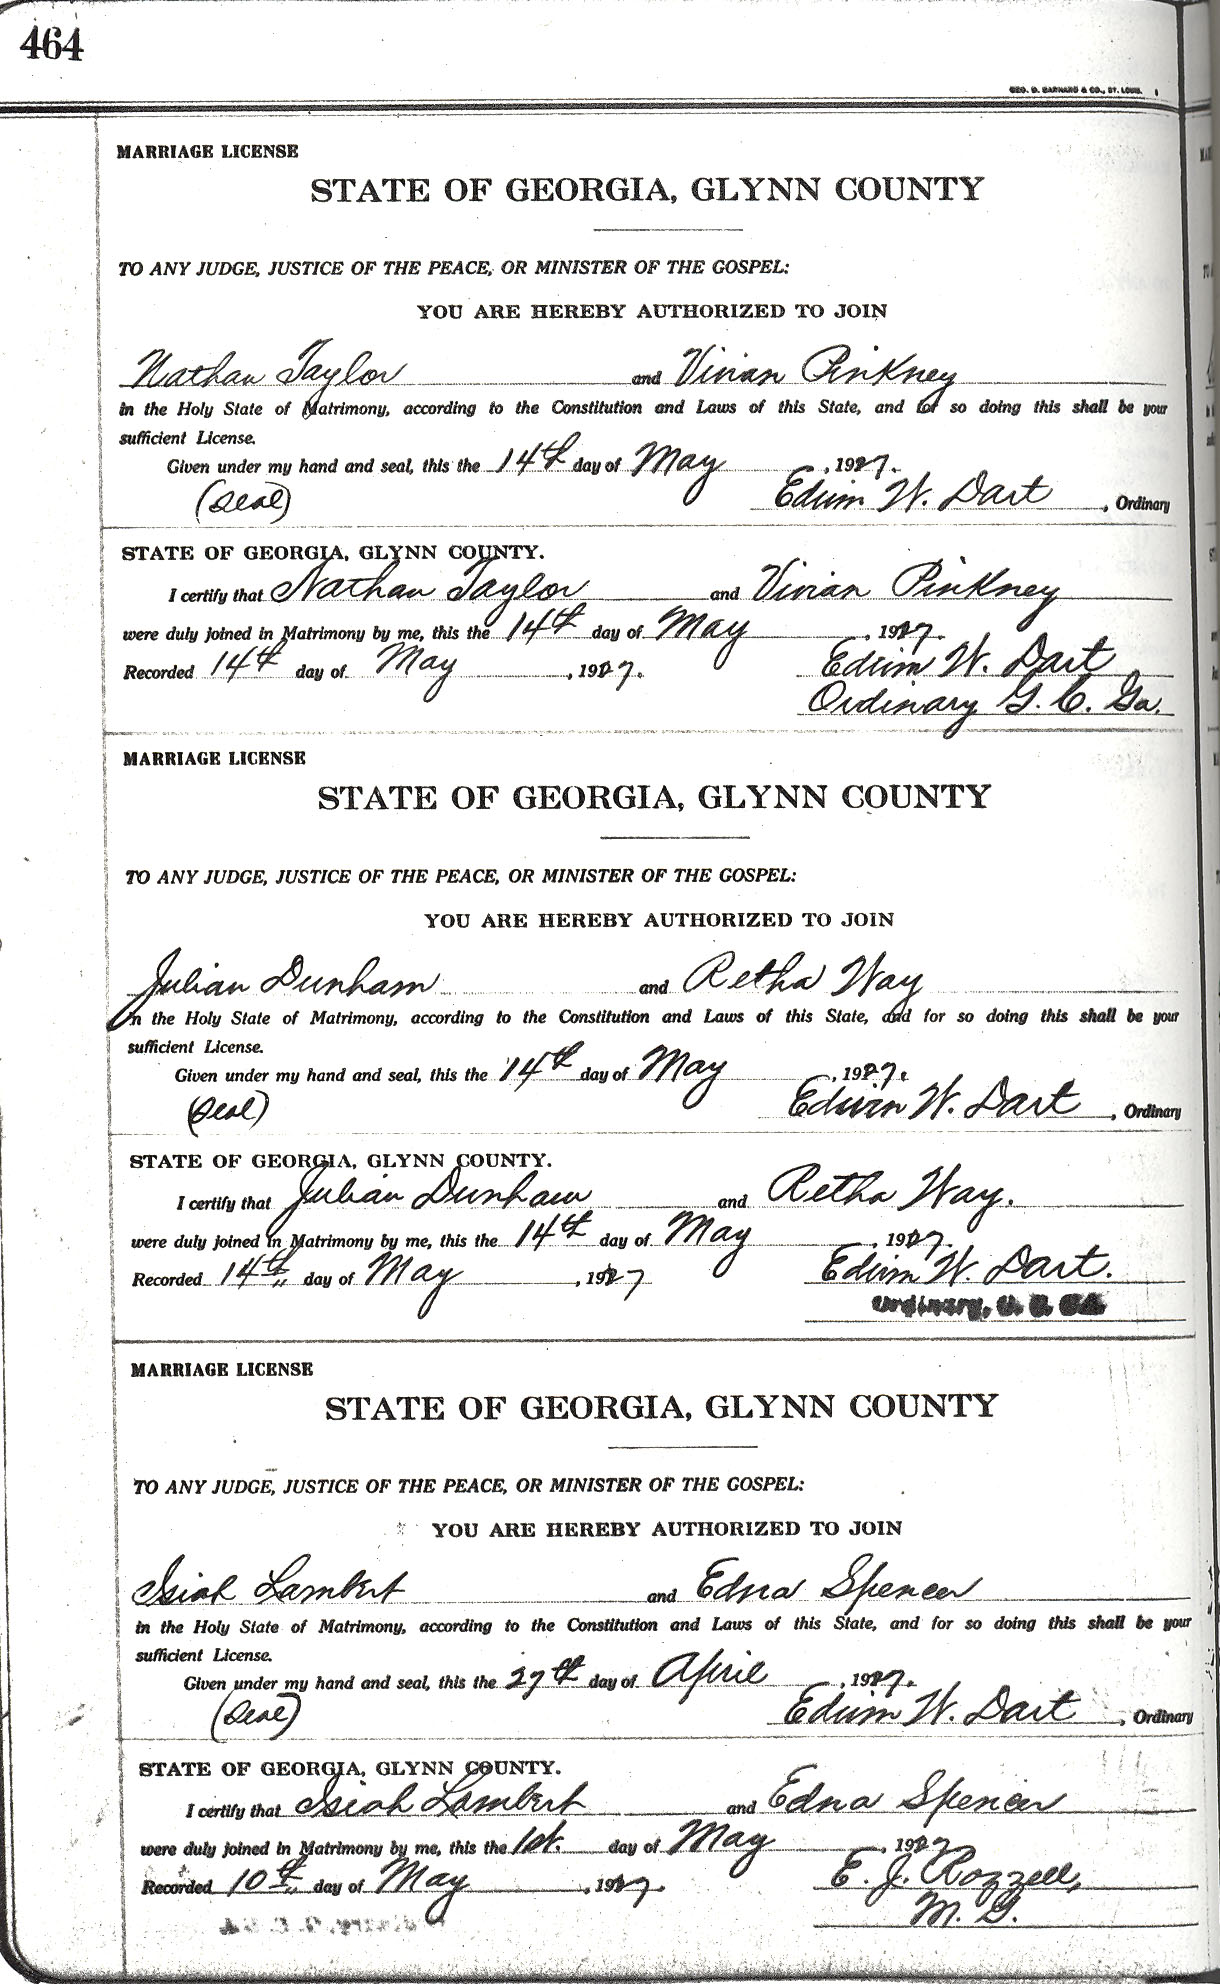 464
GEO. D. BARNARD & CO., ST. LOUIS.
MARRIAGE LICENSE
STATE OF GEORGIA, GLYNN COUNTY
TO ANY JUDGE, JUSTICE OF THE PEACE, OR MINISTER OF THE GOSPEL:
YOU ARE HEREBY AUTHORIZED TO JOIN
Nathan Taylor and Vivian Pinkney
in the Holy State of Matrimony, according to the Constitution and Laws of this State, and for so doing this shall be your
sufficient License.
Given under my hand and seal, this the 14th day of May, 1927.
(Seal) Edwin W. Dart, Ordinary
STATE OF GEORGIA, GLYNN COUNTY.
I certify that Nathan Taylor and Vivian Pinkney
were duly joined in Matrimony by me, this the 14th day of May, 1927.
Recorded 14th day of May, 1927. Edwin W. Dart
Ordinary G. C. Ga.
MARRIAGE LICENSE
STATE OF GEORGIA, GLYNN COUNTY
TO ANY JUDGE, JUSTICE OF THE PEACE, OR MINISTER OF THE GOSPEL:
YOU ARE HEREBY AUTHORIZED TO JOIN
Julian Dunham and Retha Way
in the Holy State of Matrimony, according to the Constitution and Laws of this State, and for so doing this shall be your
sufficient License.
Given under my hand and seal, this the 14th day of May, 1927.
(Seal) Edwin W. Dart, Ordinary
STATE OF GEORGIA, GLYNN COUNTY.
I certify that Julian Dunham and Retha Way.
were duly joined in Matrimony by me, this the 14th day of May, 1927.
Recorded 14th day of May, 1927 Edwin W. Dart.
Ordinary,
MARRIAGE LICENSE
STATE OF GEORGIA, GLYNN COUNTY
TO ANY JUDGE, JUSTICE OF THE PEACE, OR MINISTER OF THE GOSPEL:
YOU ARE HEREBY AUTHORIZED TO JOIN
Isiah Lambert and Edna Spencer
in the Holy State of Matrimony, according to the Constitution and Laws of this State, and for so doing this shall be your
sufficient License.
Given under my hand and seal, this the 27th day of April, 1927.
(Seal) Edwin W. Dart, Ordinary
STATE OF GEORGIA, GLYNN COUNTY.
I certify that Isiah Lambert and Edna Spencer
were duly joined in Matrimony by me, this the 1st. day of May, 1927
Recorded 10th day of May, 1927. E. J. Rozzell,
M. G.